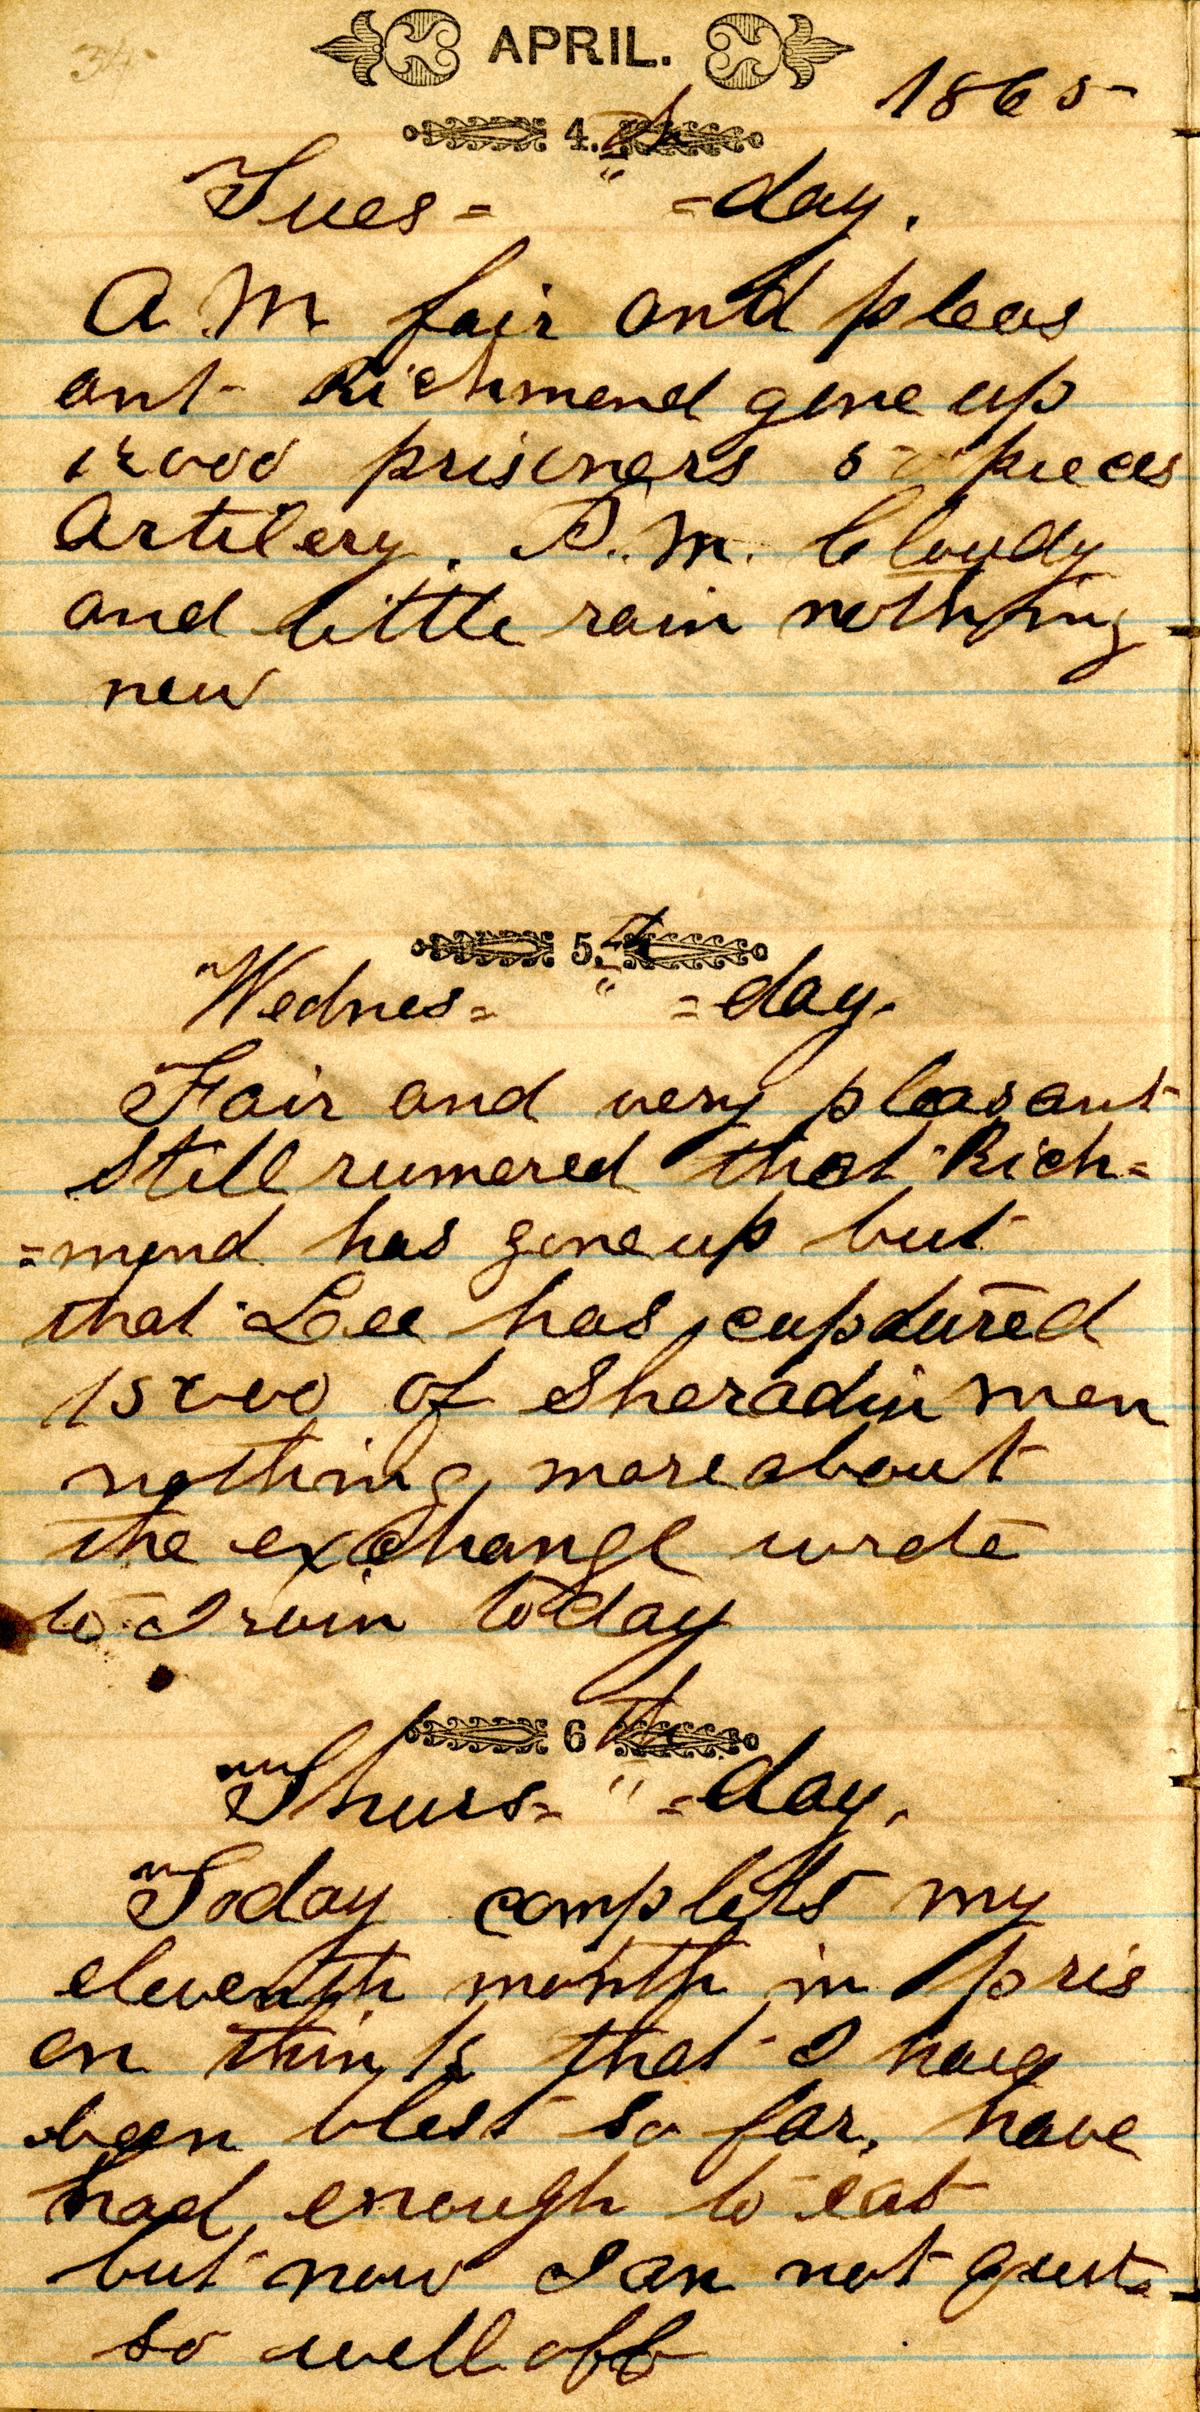 34
APRIL.
1865
4.th
Tues= " =day.
A. M. fair and pleas
ant Richmond gone up
12000 prisoners 5 pieces
Artilery. P. M. Cloudy
and little rain nothing
new
5.th
Wednes= " =day.
Fair and very pleasant
still rumored that Rich=
=mond has gone up but
that Lee has cuptured
15000 of Sheradin men
nothing more about
the exchange wrote
to Irvin today
6 th
Thurs= " =day.
Today complets my
eleventh month in pris
on think that I have
been blest so far, have
had enough to eat
but now I am not quite
so well off